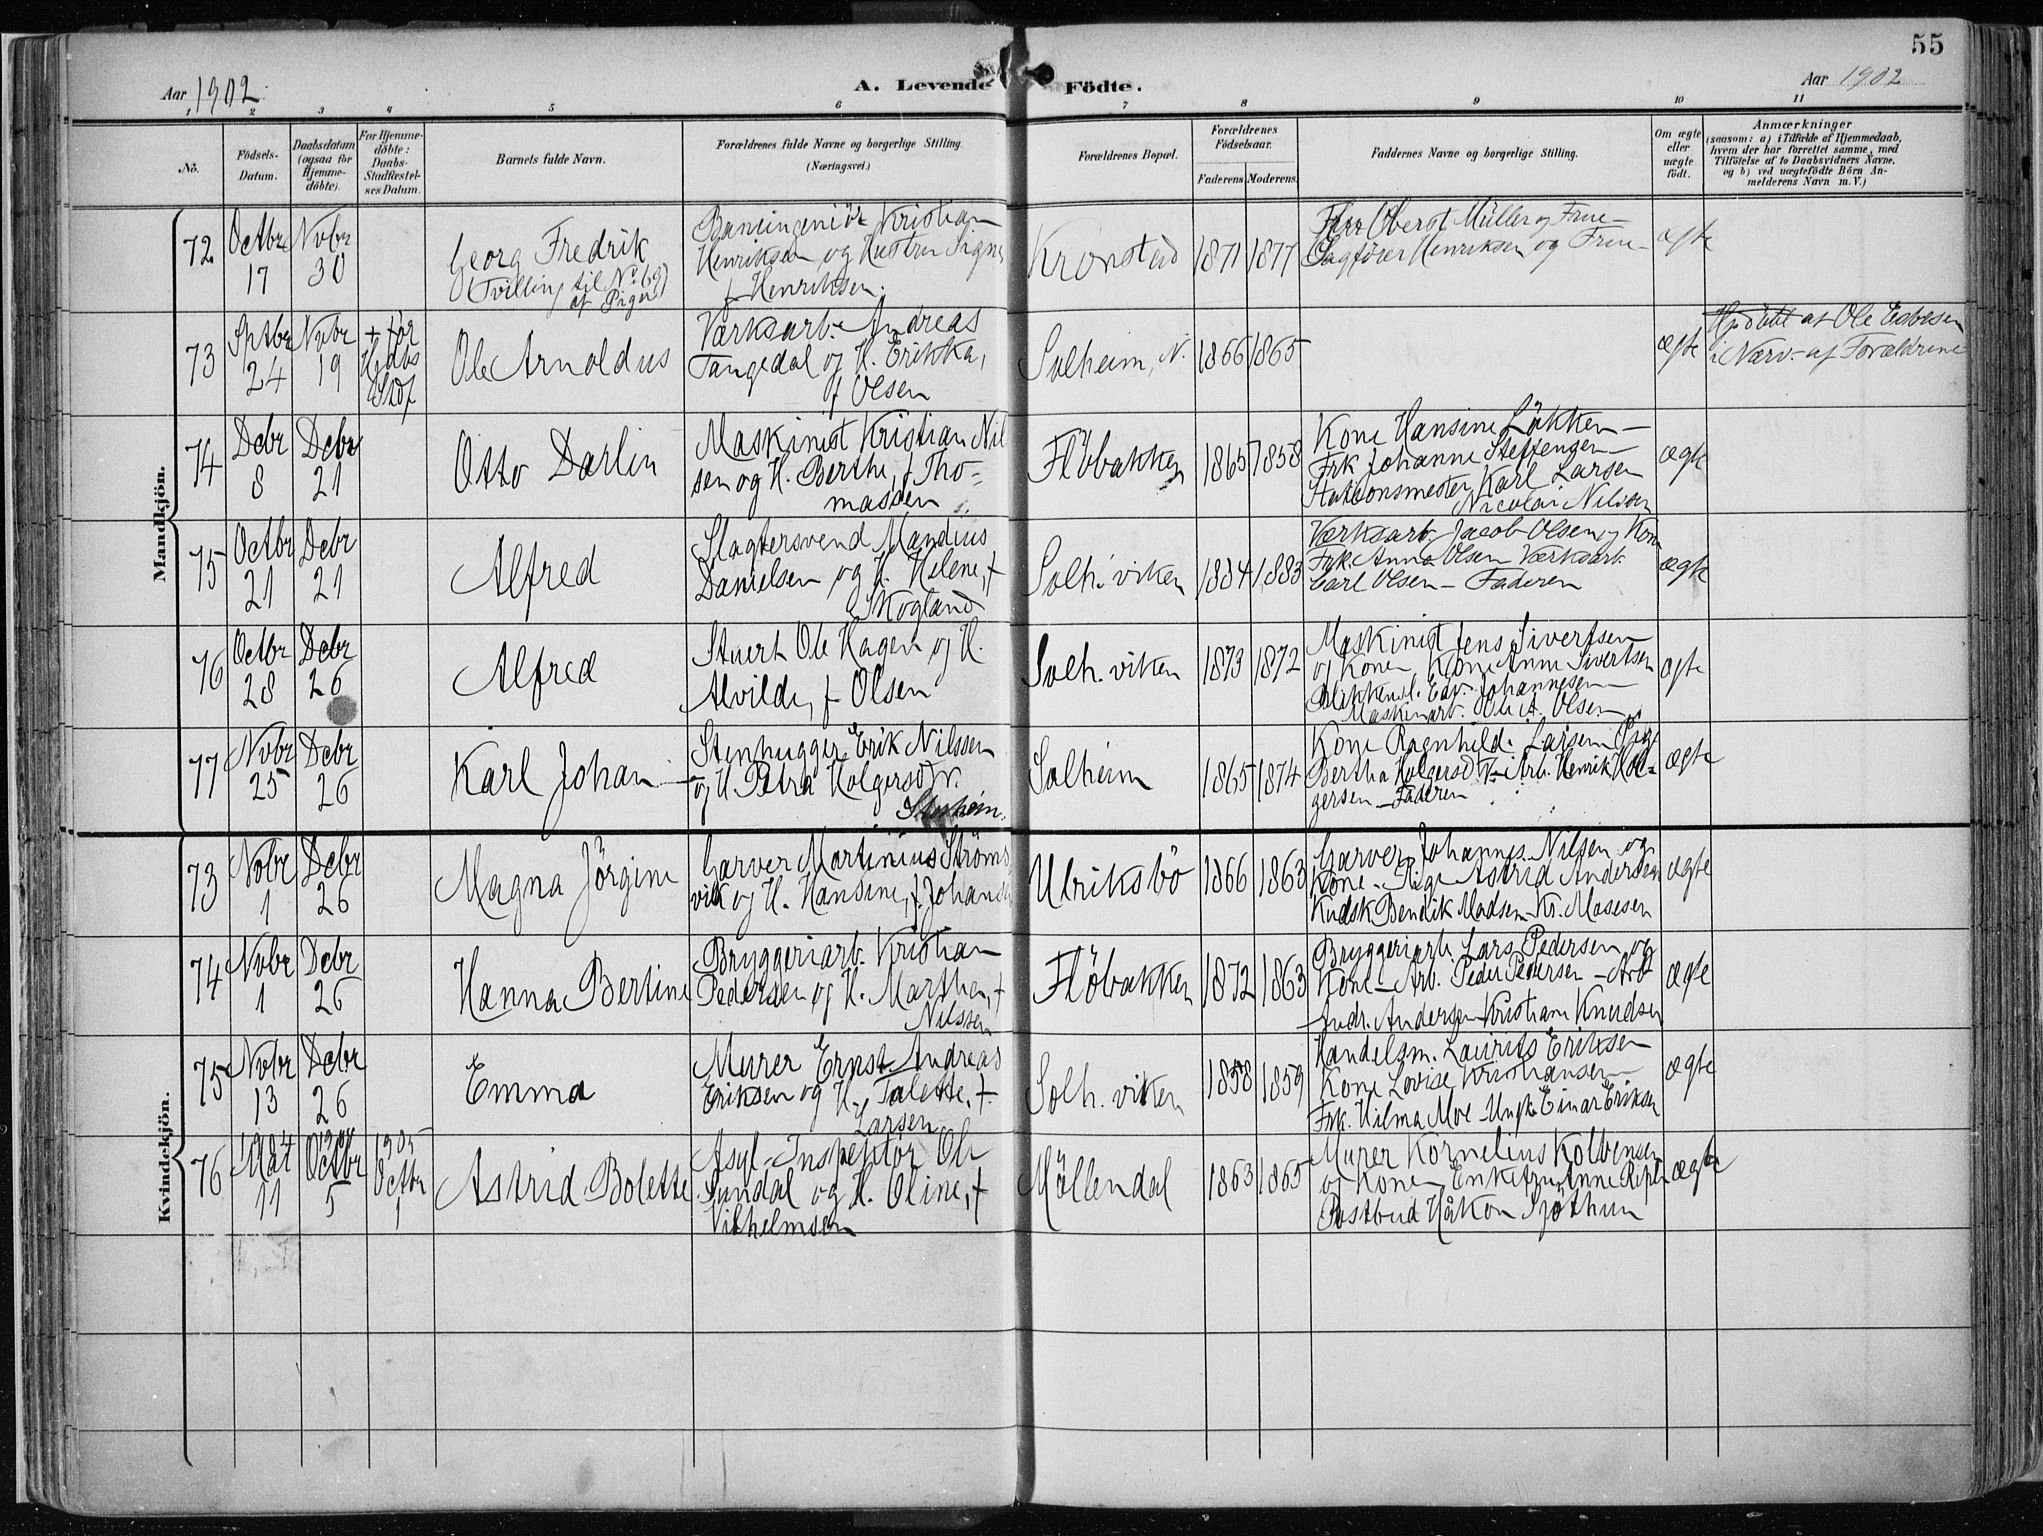 55
Aar 1902.
A. Levende Födte.
Aar 1902
1 2 3 4 5 6 7 8 9 10 11
No.
Födsels-
Datum.
Daabsdatum
(ogsaa for
Hjemme-
döbte).
For Hjemme-
döbte:
Daabs-
Stadfestel-
ses Datum.
Barnets fulde Navn.
Forældrenes fulde Navne og borgerlige Stilling.
(Næringsvei.)
Forældrenes Bopæl.
Forældrenes
Födselsaar.
Faderens Moderens.
Faddernes Navne og borgerlige Stilling.
Om ægte
eller
uægte
födt.
Anmærkninger
(saasom: a) i Tilfælde af Hjemmedaab,
hvem der har forrettet samme, med
Tilföielse af to Daabsvidners Navne,
og b) ved uægtefödte Börn An-
melderens Navn m. V.)
Mandkjön.
72
Octbr
17
Nvbr
30
Georg Fredrik
(Tvilling til No 69
af Piger)
Baneingeniör Kristian
Henriksen og Hustru Signe
f Henriksen.
Kronstad
1871
1877
Herr Oberst Müller og Frue –
Sagförer Henriksen og Frue –
ægte
73
Sptbr
24
Nvbr
19
+ för
Hjdbs
Stdf
Ole Arnoldus
Værksarb. Andreas
Tangedal og H. Erikka,
f Olsen
Solheim, N.
1866
1865
ægte
Hjdöbt af Ole Esbesen
i Nærv. af Forældrene
74
Dcbr
8
Dcbr
21
Otto Darlin
Maskinist Kristian Nil
sen og H. Berthe, f Tho-
massen
Flöbakken
1865
1858
Kone Hansine Lökken –
Frk Johanne Steffensen –
Stationsmester Karl Larsen
Nicolai Nilssen
ægte
75
Octbr
21
Dcbr
21
Alfred
Slagtersvend Mandius
Danielsen og H. Helene, f
Skogland
Solh. viken
1884
1883
Værksarb. Jacob Olsen og Kone
Frk. Anna Olsen Værksarb.
Carl Olsen – Faderen
ægte
76
Octbr
28
Dcbr
26
Alfred
Stuert Ole Hagen og H.
Alvilde, f Olsen
Solh. viken
1873
1872
Maskinist Jens Sivertsen
og Kone Kone Anne Sivertsen
Blikkensl. Edv. Johannesen –
Maskinarb. Ole A. Olsen
ægte
77
Nvbr
25
Dcbr
26
Karl Johan
Stenhugger Erik Nilssen
og H. Petra Holgersdtr.
Solheim
1865
1874
Kone Ragnhild Larsen Pige
Bertha Holgersdtr – Arb. Henrik Hol-
gersen – Faderen
ægte
Kvindekjön.
73
Nvbr
1
Dcbr
26
Magna Jörgine
Garver Martinius Ströms
vik og H. Hansine, f. Johansen
Ulriksbö
1866
1863
Garver Johannes Nilsen og
Kone – Pige Astrid Andersen
Kudsk Bendik Madsen – Kr. Mosesen
ægte
74
Nvbr
1
Dcbr
26
Hanna Bertine
Bryggeriarb. Kristian
Pedersen og H. Martha, f
Nilssen
Flöbakken
1872
1863
Bryggeriarb. Lars Pedersen og
Kone – Arb. Peder Pedersen – Arb
Andr. Andersen Kristiane Knudsen
ægte
75
Nvbr
13
Dcbr
26
Emma
Murer Ernst Andreas
Eriksen og H. Talette, f.
Larsen
Solh. viken
1858
1859
Handelsm. Laurits Eriksen
Kone Lovise Kristiansen –
Frk. Hilma Moe Ungk. Einar Eriksen
ægte
76
Mai
11
Octbr
5
1905
Octbr
1
Astrid Bolette
Asyl-Inspektör Ole
Sundal og H. Oline, f
Vilhelmsen
Möllendal
1863
1865
Murer Kornelius Kolbensen
og Kone Enkefru Anne
Postbud Håkon Sjöthun
ægte